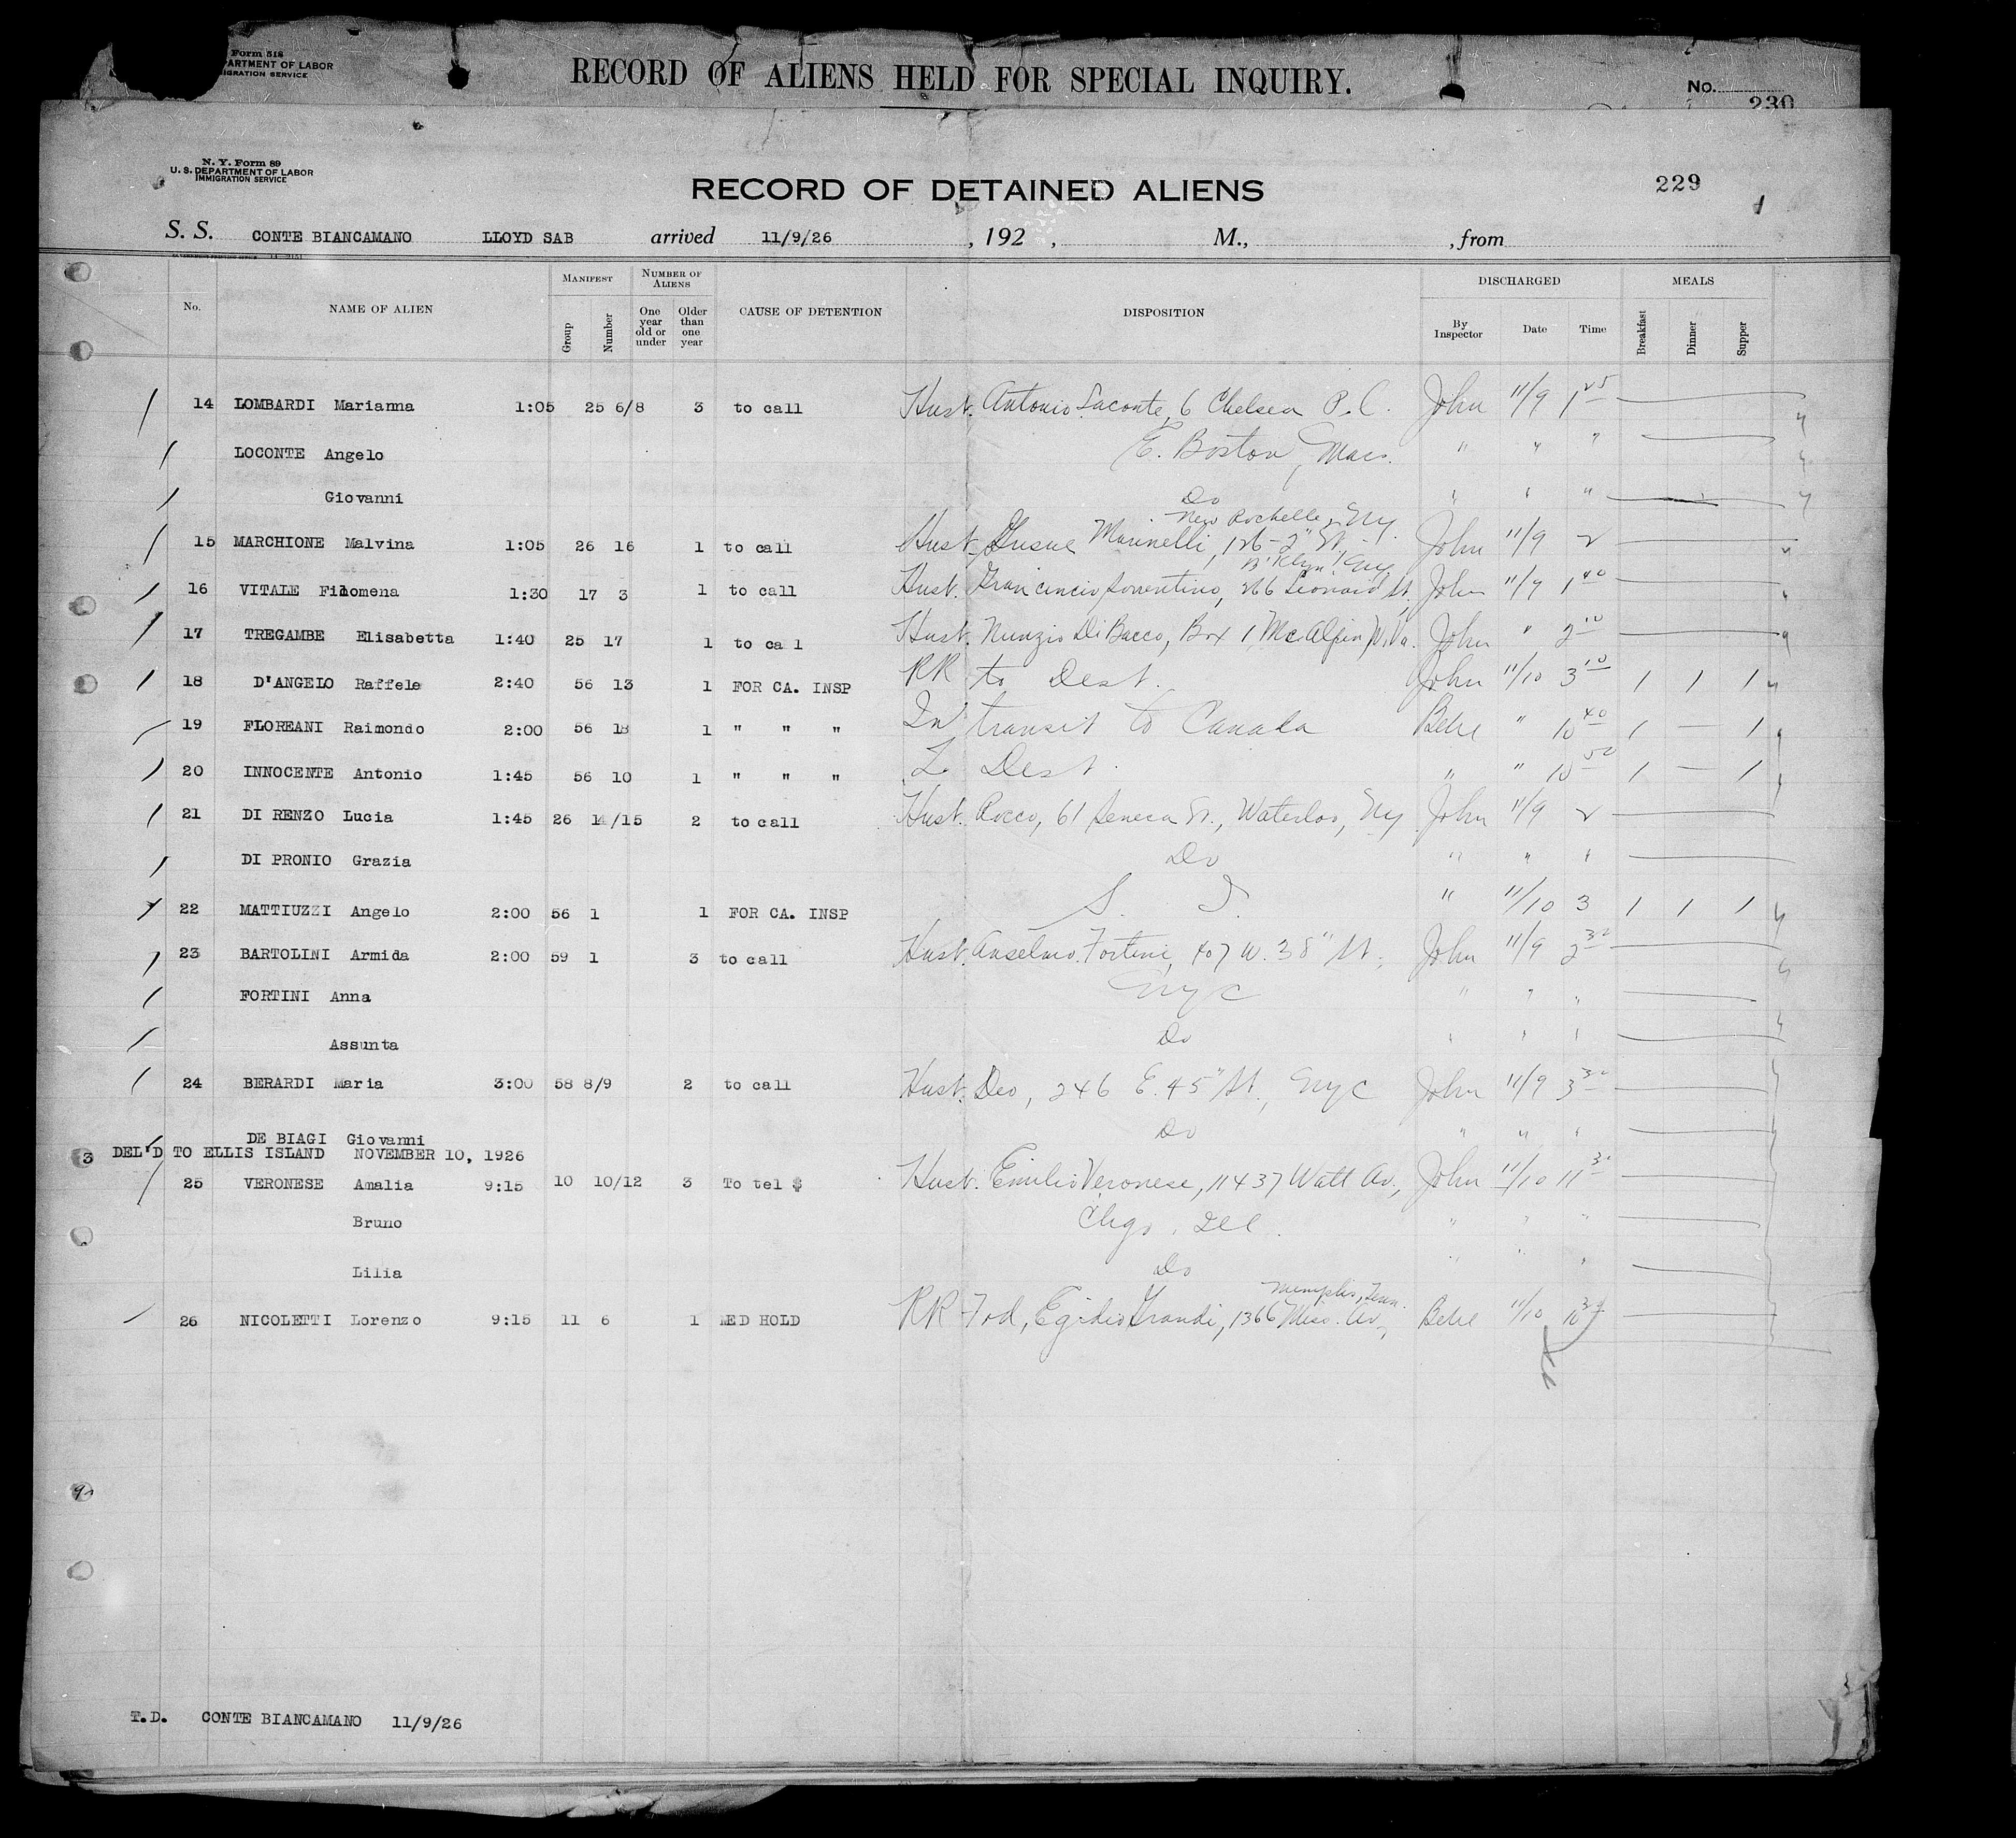 Form 518
PARTMENT OF LABOR
MIGRATION SERVICE
RECORD OF ALIENS HELD FOR SPECIAL INQUIRY.
No.
230
N. Y. Form 89
U. S. DEPARTMENT OF LABOR
IMMIGRATION SERVICE
RECORD OF DETAINED ALIENS
229
S. S. CONTE BIANCAMANO LLOYD SAB arrived 11/9/26 , 192 , M., , from
No. NAME OF ALIEN MANIFEST Group Number NUMBER OF ALIENS One year old or under Older than one year CAUSE OF DETENTION DISPOSITION DISCHARGED By Inspector Date Time MEALS Breakfast Dinner Supper
14 LOMBARDI Marianna 1:05 25 6/8 3 to call Hust. Antonio Laconte, 6 Chelsea P.C. John 11/9 1 25
LOCONTE Angelo E. Boston, Mass. " " "
Giovanni Do " " "
New Rochelle, NY
15 MARCHIONE Malvina 1:05 26 16 1 to call Hust. Marinelli, 126-2" St. John 11/9 2
B'klyn, NY
16 VITALE Filomena 1:30 17 3 1 to call Hust. Sorrentino, 266 Leonard St. John 11/9 1 40
17 TREGAMBE Elisabetta 1:40 25 17 1 to cal l Hust. Nunzio DiBacco, Box 1, McAlpin, W. Va. John " 2 10
18 D'ANGELO Raffele 2:40 56 13 1 FOR CA. INSP RR to Dest. John 11/10 3 10 1 1 1
19 FLOREANI Raimondo 2:00 56 18 1 " " " In transit to Canada Behe " 10 40 1 — 1
20 INNOCENTE Antonio 1:45 56 10 1 " " " To Dest. " " 10 50 1 — 1
21 DI RENZO Lucia 1:45 26 14/15 2 to call Hust. Rocco, 61 Seneca St., Waterloo, NY John 11/9 2
DI PRONIO Grazia Do " " "
22 MATTIUZZI Angelo 2:00 56 1 1 FOR CA. INSP S. I. " 11/10 3 1 1 1
23 BARTOLINI Armida 2:00 59 1 3 to call Hust. Anselmo Fortini, 407 W. 38" St., John 11/9 2 30
FORTINI Anna NYC " " "
Assunta Do " " "
24 BERARDI Maria 3:00 58 8/9 2 to call Hust. Deo, 246 E. 45" St., NYC John 11/9 3 30
DE BIAGI Giovanni Do " " "
3 DEL'D TO ELLIS ISLAND NOVEMBER 10, 1926
25 VERONESE Amalia 9:15 10 10/12 3 To tel $ Hust. Emilio Veronese, 11437 Watt Av., John 11/10 11 30
Bruno Chgo, Ill. " " "
Lilia Do " " "
Memphis, Tenn.
26 NICOLETTI Lorenzo 9:15 11 6 1 MED HOLD RR Fod, Egidio Grandi, 1366 Miss. Av., Behe 11/10 10
T.D. CONTE BIANCAMANO 11/9/26